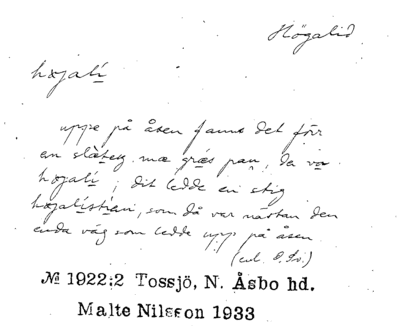 Högalid
højalí
uppe på åsen fanns det förr
en slåteg mæ græs pan, da va
højalí; dit ledde en stig
højalístian, som då var nästan den
enda väg som ledde upp på åsen.
(enl. E. Sv.)
№ 1922:2 Tossjö, N. Åsbo hd.
Malte Nilsson 1933